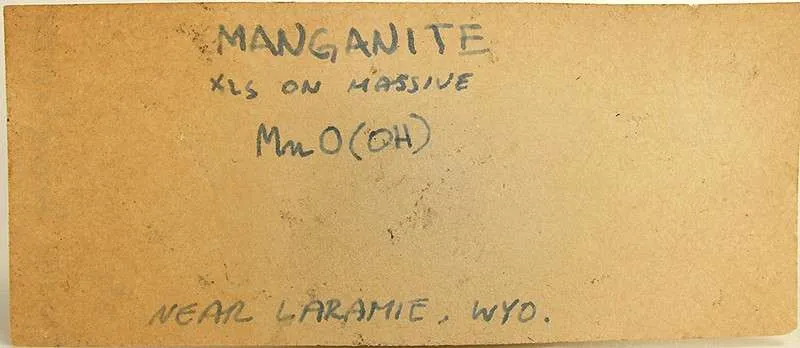 MANGANITE
XLS ON MASSIVE
MnO(OH)
NEAR LARAMIE, WYO.